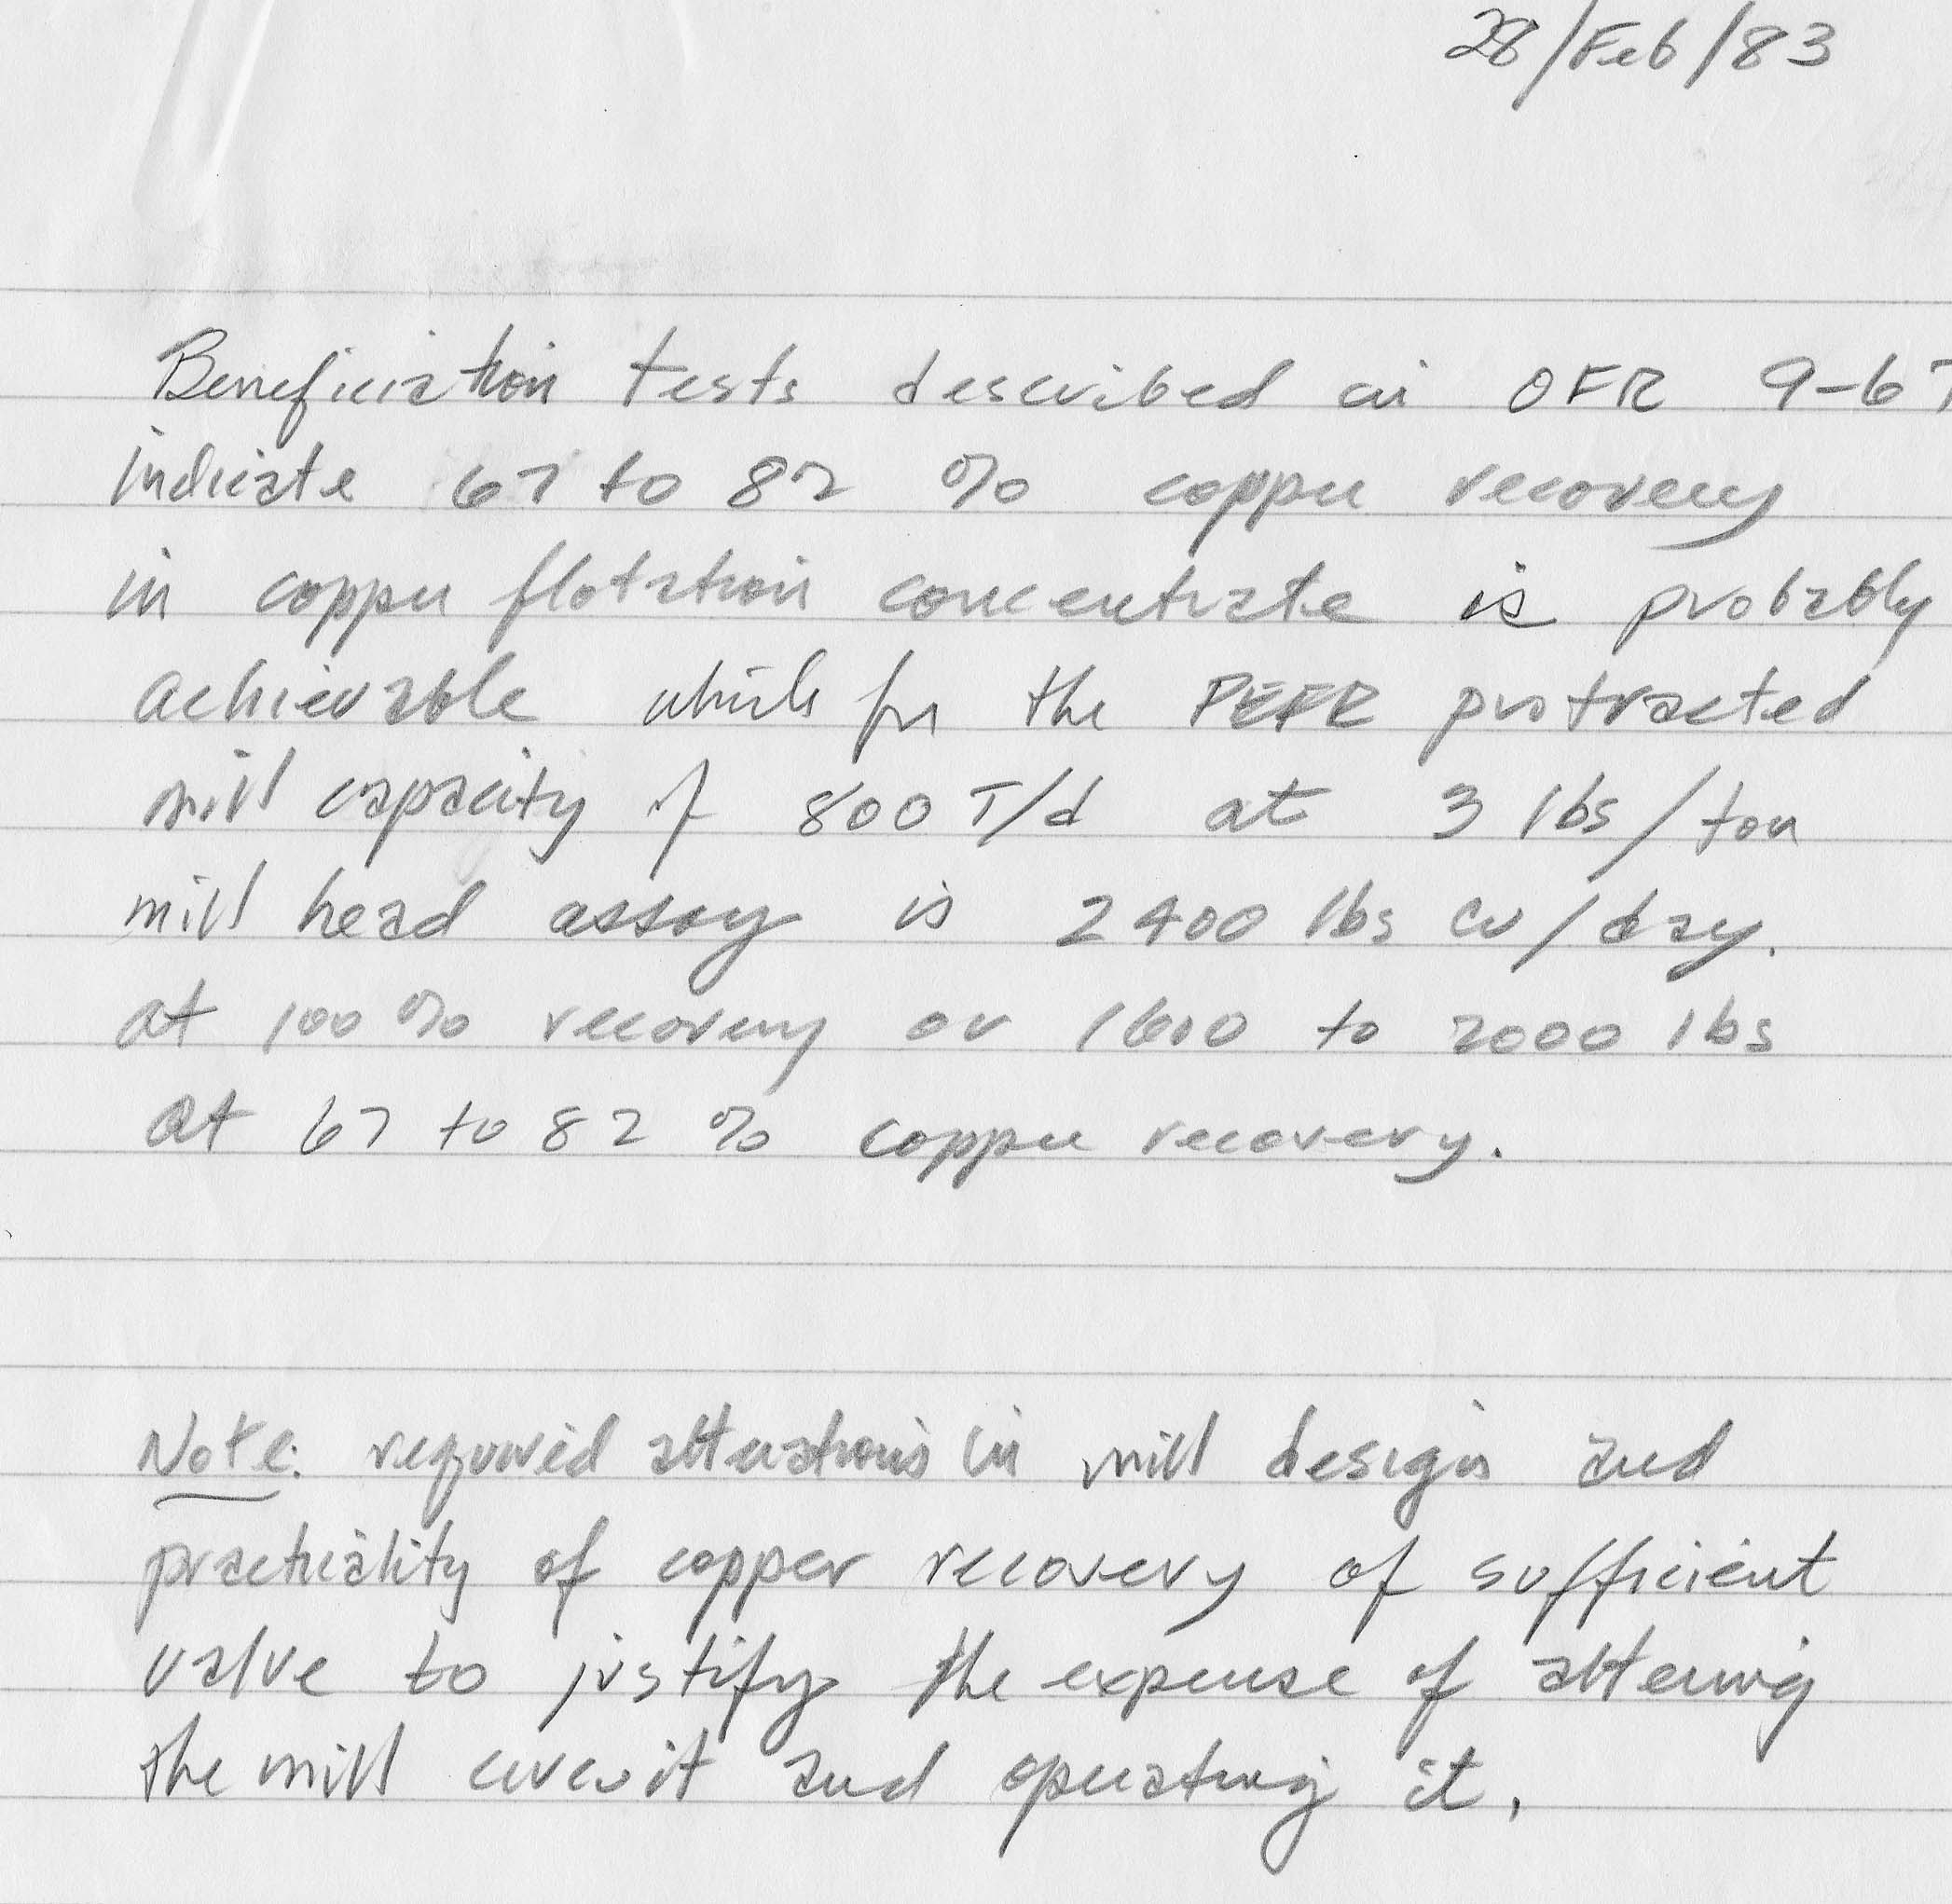 28/Feb/83
Beneficiation tests described in OFR 9-67
indicate 67 to 82 % copper recovery
in copper flotation concentrate is probably
achievable which for the PEFR protracted
mill capacity of 800 T/d at 3 lbs/ton
mill head assay is 2400 lbs Cu/day.
at 100 % recovery or 1600 to 2000 lbs
at 67 to 82 % copper recovery.
Note: required alterations in mill design and
practicality of copper recovery of sufficient
value to justify the expense of altering
the mill circuit and operating it.